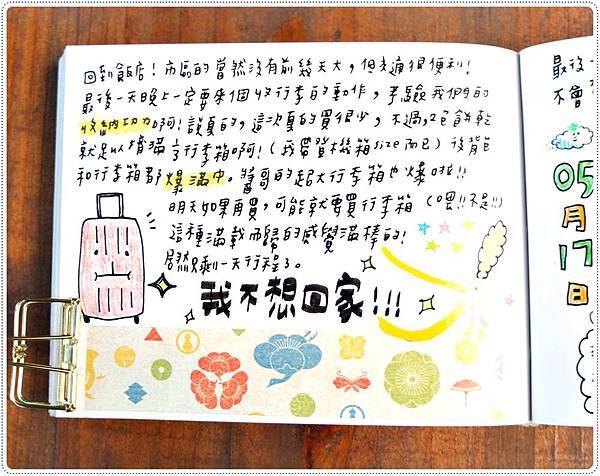 回到飯店!市區的當然沒有前幾天大,但交通很便利!
最後一天晚上一定要來個收行李的動作,考驗我們的
收納功力啊!說真的,這次買的很少,不過,2包餅乾
就足以塞滿了行李箱啊!(我帶登機箱size而已)後背包
和行李箱都爆滿中。醬哥的超大行李箱也爆啦!!
明天如果再買,可能就要買行李箱(喂!!不是!!)
這種滿載而歸的感覺滿棒的!
居然只剩一天行程了。
我不想回家!!!
最後一
不會
05
月
17
日